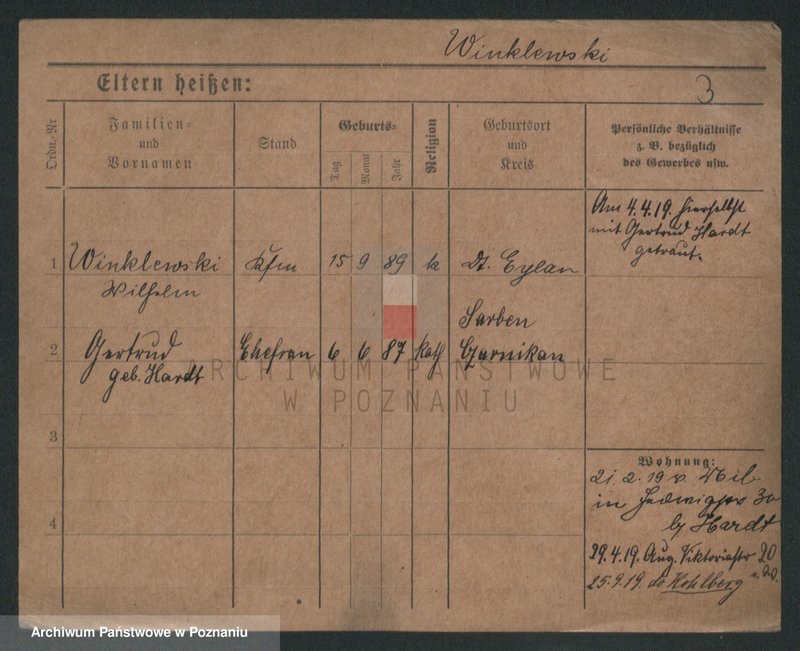 Winklewski
Eltern heißen:
3
Ordn.-Nr
Familien-
und
Vornamen
Stand
Geburts-
Tag
Monat
Jahr
Religion
Geburtsort
und
Kreis
Persönliche Verhältnisse
z. B. bezüglich
des Gewerbes usw.
Am 4.4.19. hierselbst
mit Gertrud Hardt
getraut.
1 Winklewski Kfm 15 9 89 k Dt. Eylau
Wilhelm
Sarben
2 Gertrud Ehefrau 6 6 87 Kath Czarnikau
geb. Hardt
ARCHIWUM PAŃSTWOWE
W POZNANIU
3
4
Wohnung:
21.2.19 v. Mil
in 30
by Hardt
29.4.19. Aug. Viktoriastr 20
25.9.19. Kohlberg
Archiwum Państwowe w Poznaniu